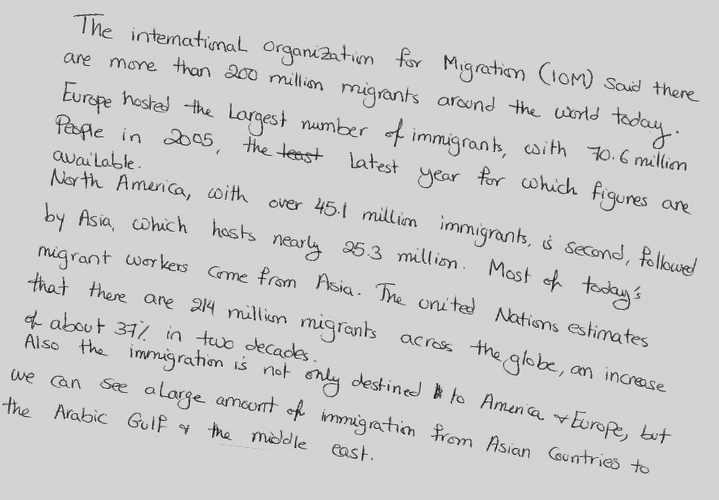 The international organization for Migration (IOM) said there
are more than 200 million migrants around the world today.
Europe hosted the Largest number of immigrants, with 70.6 million
People in 2005, the least latest year for which figures are
available.
North America, with over 45.1 million immigrants, is second, followed
by Asia, which hosts nearly 25.3 million. Most of today's
migrant workers come from Asia. The united Nations estimates
that there are 214 million migrants across the globe, an increase
of about 37% in two decades.
Also the immigration is not only destined to America & Europe, but
we can see a Large amount of immigration from Asian Countries to
the Arabic Gulf & the middle east.